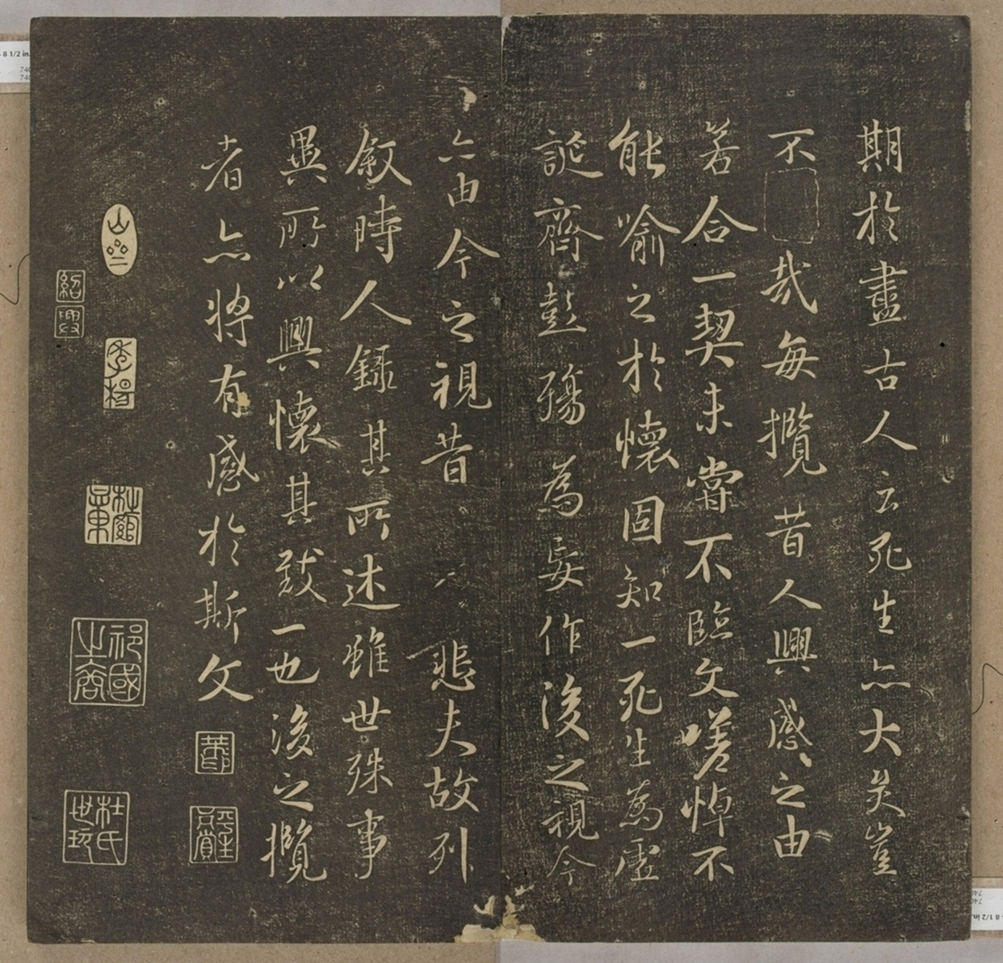 期於盡古人云死生亦大矣豈
不哉每攬昔人興感之由
若合一契未嘗不臨文嗟悼不
能喻之於懷固知一死生為虛
誕齊彭殤為妄作後之視今
亦由今之視昔悲夫故列
敘時人錄其所述雖世殊事
異所以興懷其致一也後之攬
者亦將有感於斯文
紹興
杜氏世玩
8 1/2 in.